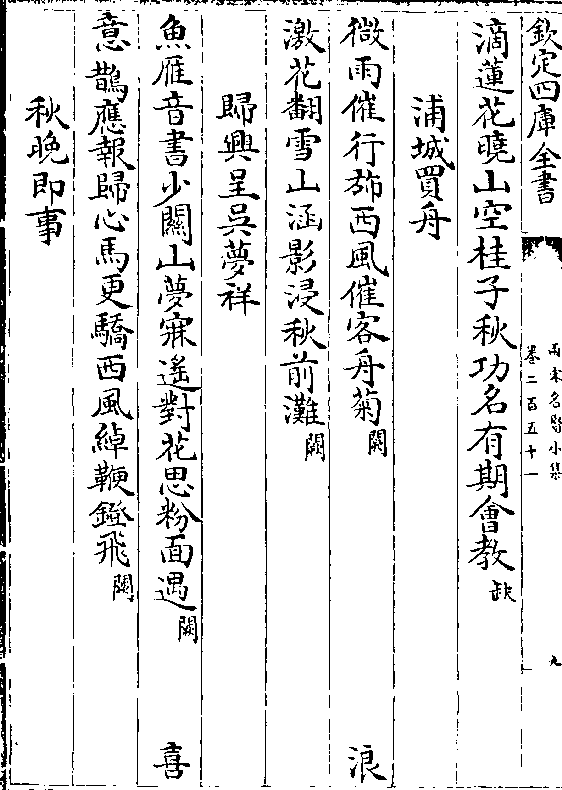 欽定四庫全書
兩宋名賢小集
卷二百五十一
九
滴蓮花曉山空桂子秋功名有期會教缺
浦城買舟
微雨催行斾西風催客舟菊闕 浪
激花翻雪山涵影浸秋前灘闕
歸興呈吳夢祥
魚雁音書少關山夢寐遙對花思粉面遇闕 喜
意鵲應報歸心馬更驕西風綽鞭鐙飛闕
秋晚即事